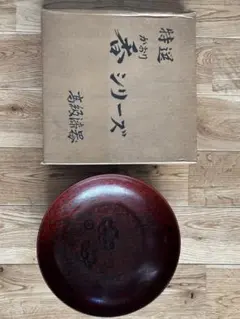 特選
かおり
香シリーズ
高級漆器